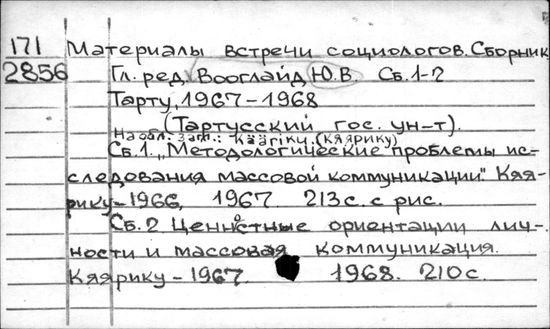 171 Материалы встречи социологов. Сборник
2856 Гл. ред. Вооглайд Ю.В. Сб. 1-2
Тарту, 1967-1968
(Тартусский гос. ун-т).
На обл. загл.: Kääriku. (КЯЯРИКУ)
Сб.1. „Методологические проблемы ис-
следования массовой коммуникации." Кяя-
рику-1966, 1967. 213 с. с рис.
Сб.2 Ценностные ориентации лич-
ности и массовая коммуникация.
Кяярику-1967. 1968. 210 с.